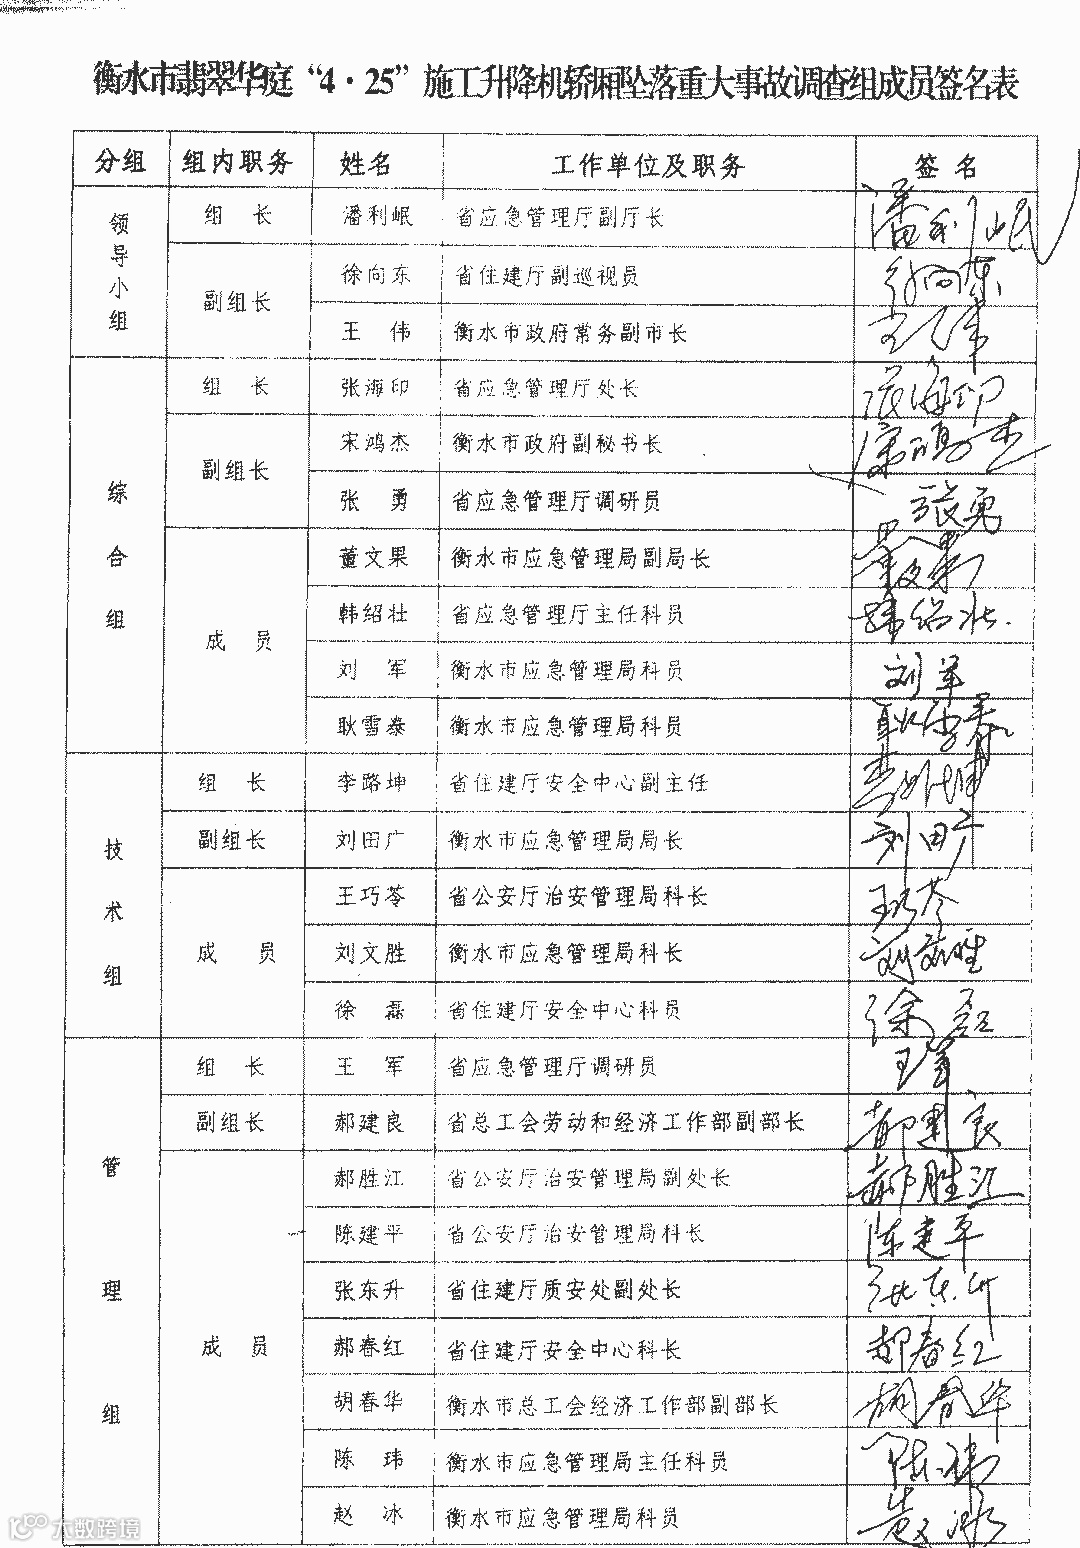 衡水市翡翠华庭“4·25”施工升降机轿厢坠落重大事故调查组成员签名表
分组 组内职务 姓名 工作单位及职务 签名
领导小组
组长 潘利岷 省应急管理厅副厅长 潘利岷
副组长
徐向东 省住建厅副巡视员 徐向东
王伟 衡水市政府常务副市长 王伟
综合组
组长 张海印 省应急管理厅处长 张海印
副组长
宋鸿杰 衡水市政府副秘书长 宋鸿杰
张勇 省应急管理厅调研员 张勇
成员
董文果 衡水市应急管理局副局长 董文果
韩绍壮 省应急管理厅主任科员 韩绍壮
刘军 衡水市应急管理局科员 刘军
耿雪泰 衡水市应急管理局科员 耿雪泰
技术组
组长 李路坤 省住建厅安全中心副主任 李路坤
副组长 刘田广 衡水市应急管理局局长 刘田广
成员
王巧苓 省公安厅治安管理局科长 王巧苓
刘文胜 衡水市应急管理局科长 刘文胜
徐磊 省住建厅安全中心科员 徐磊
管理组
组长 王军 省应急管理厅调研员 王军
副组长 郝建良 省总工会劳动和经济工作部副部长 郝建良
成员
郝胜江 省公安厅治安管理局副处长 郝胜江
陈建平 省公安厅治安管理局科长 陈建平
张东升 省住建厅质安处副处长 张东升
郝春红 省住建厅安全中心科长 郝春红
胡春华 衡水市总工会经济工作部副部长 胡春华
陈玮 衡水市应急管理局主任科员 陈玮
赵冰 衡水市应急管理局科员 赵冰
大数跨境